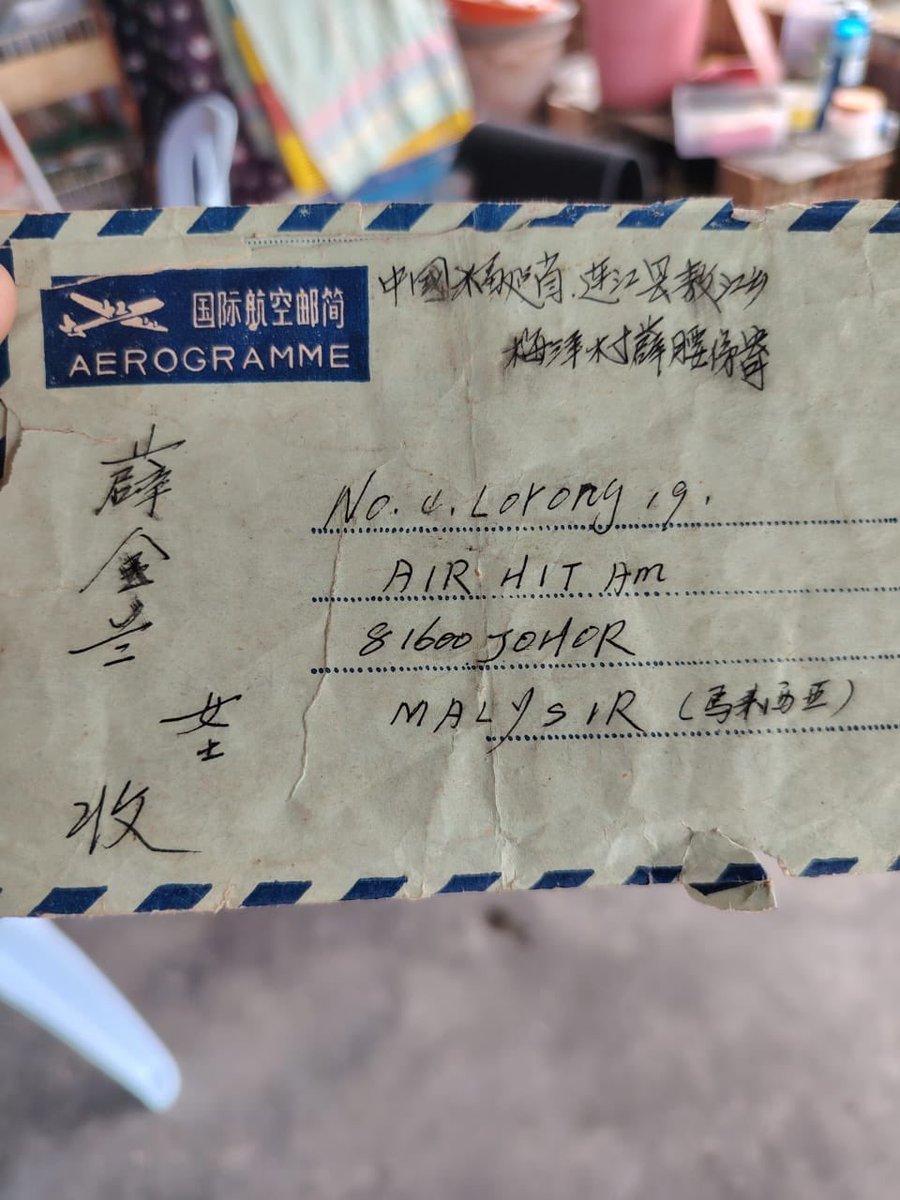 国际航空邮简
AEROGRAMME
中國福建省.连江县敖江乡
梅洋村薛腰俤寄
No. 4. Lorong 19.
AIR HIT Am
81600 JOHOR
MALySIR (馬来西亚)
薛金兰
女士
收